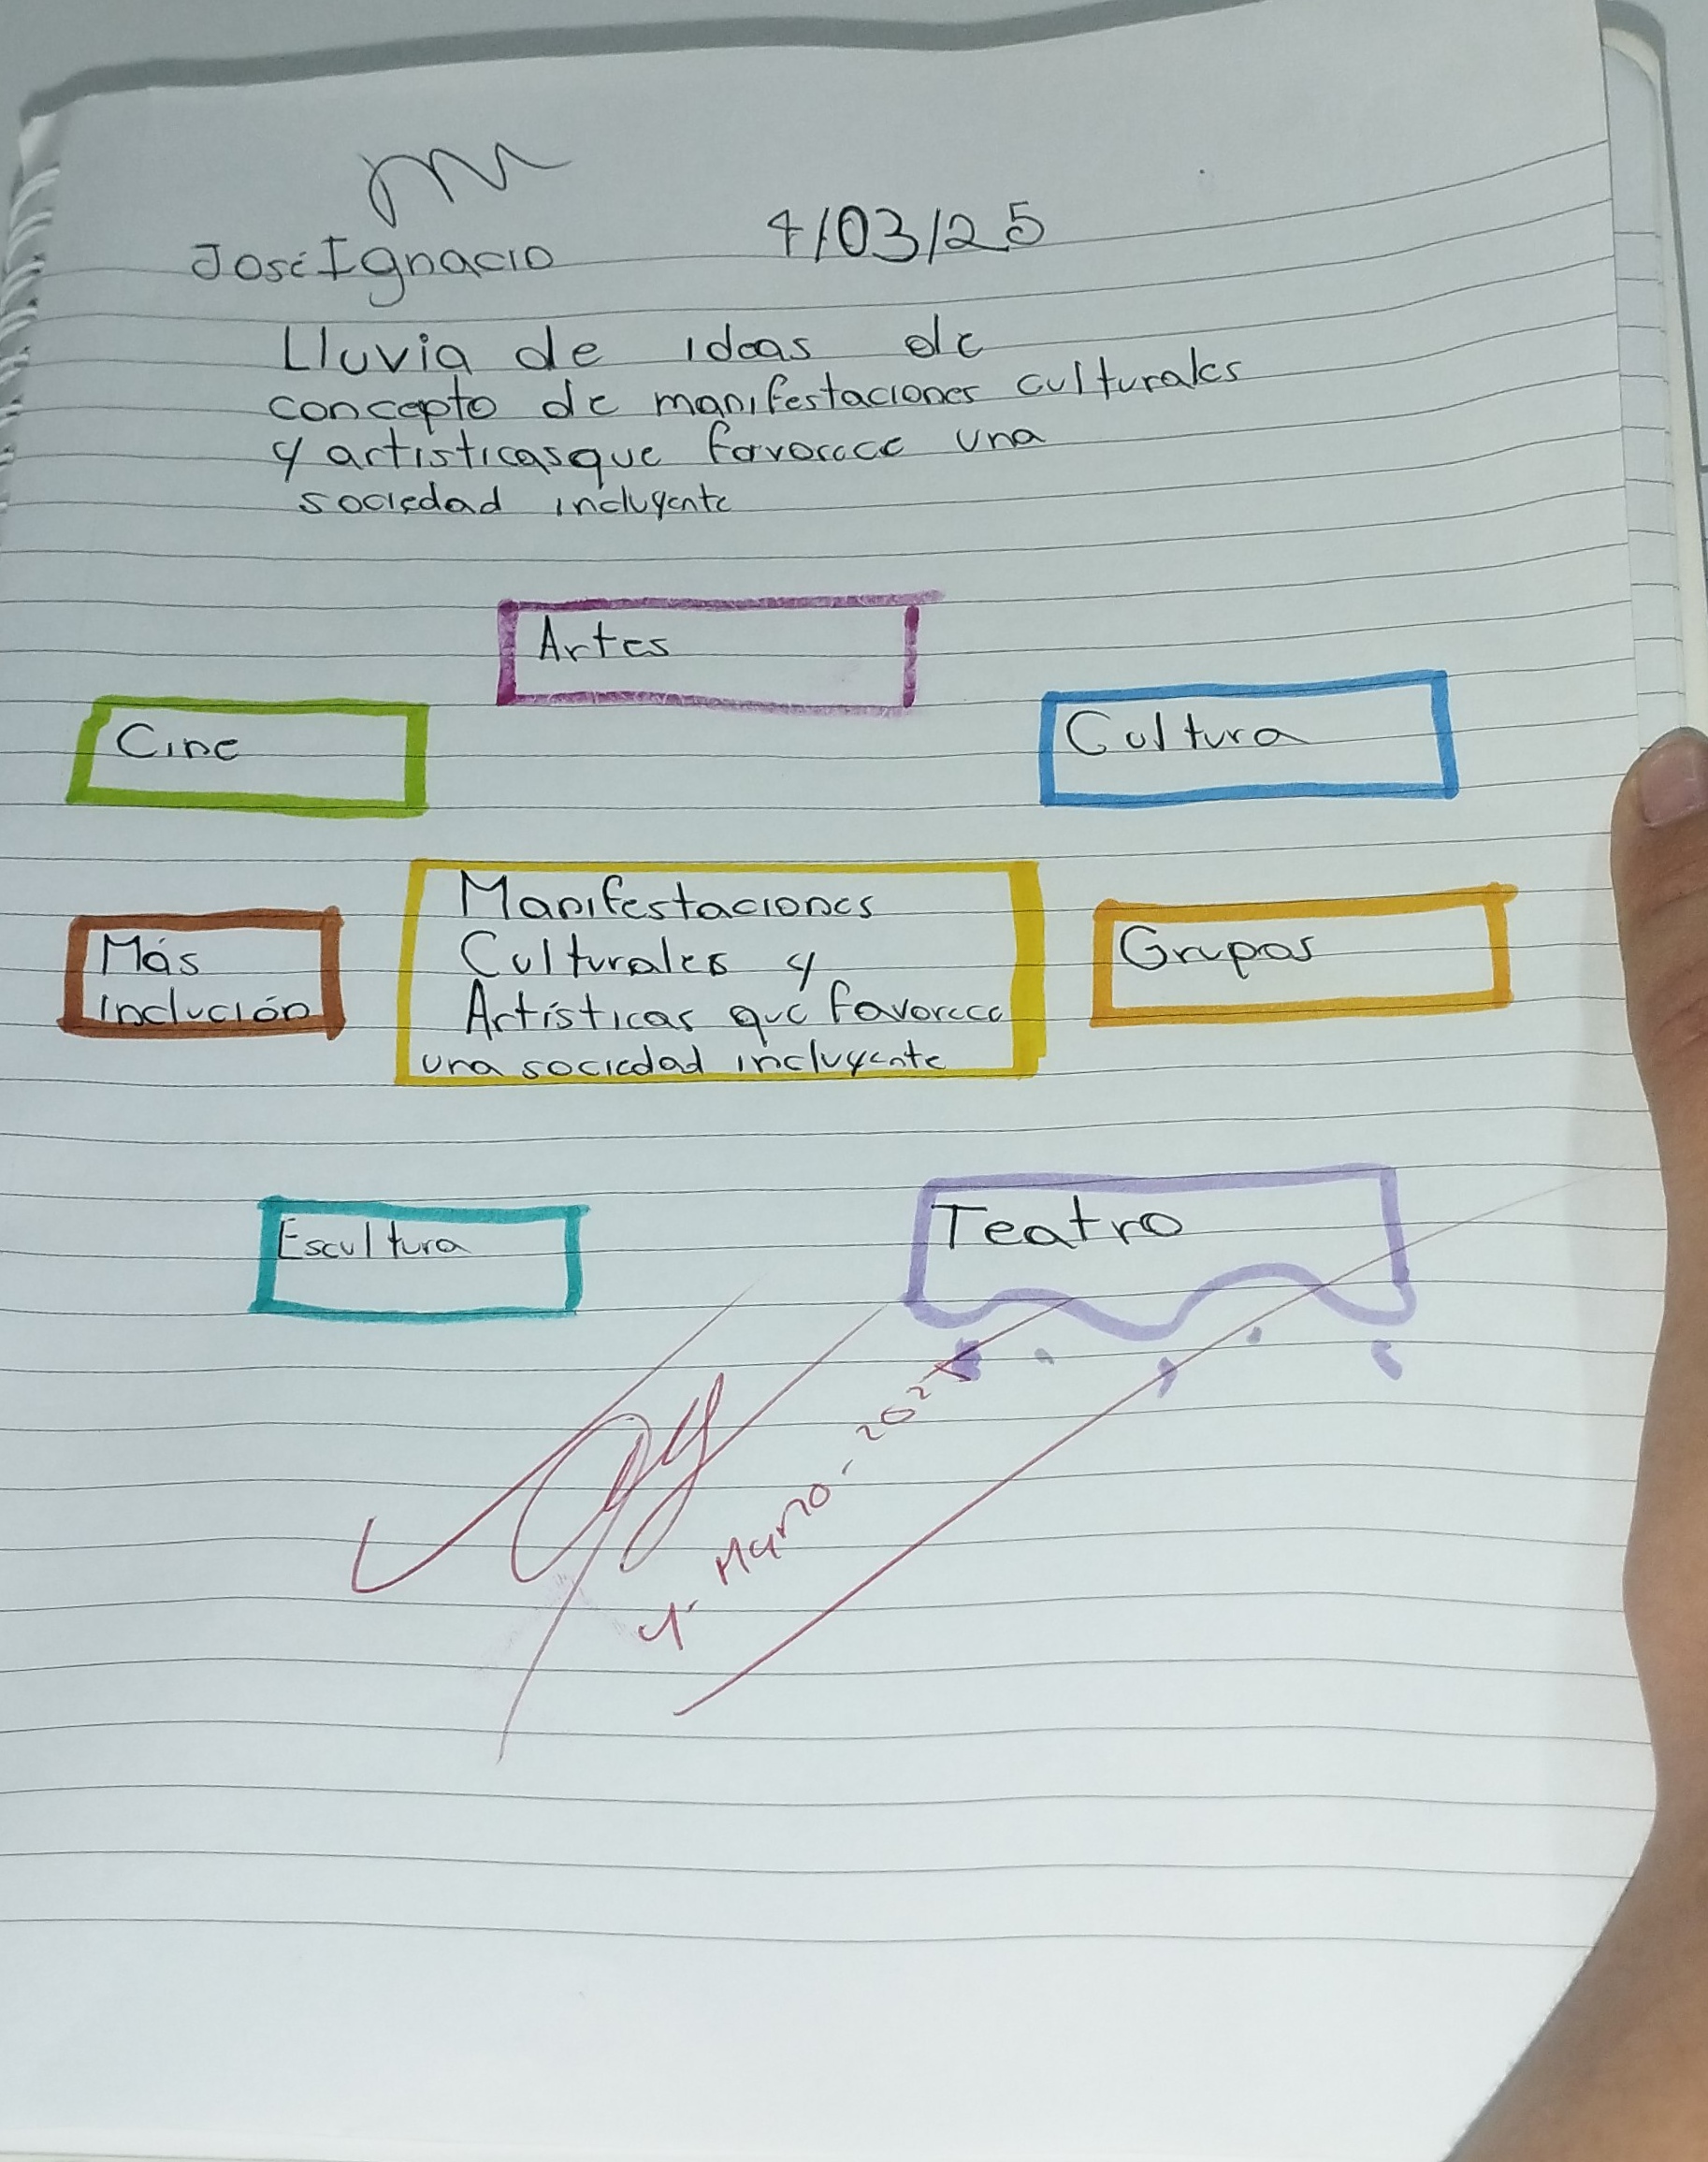 José Ignacio 4/03/25
Lluvia de ideas de
concepto de manifestaciones culturales
y artisticas que favorece una
sociedad incluyente
Artes
Cine
Cultura
Manifestaciones
Culturales y
Artísticas que favorece
una sociedad incluyente
Más
inclución
Grupos
Escultura
Teatro
4 Marzo - 2025